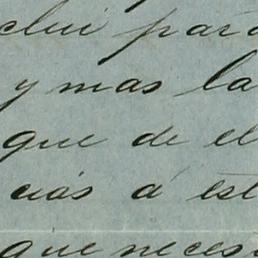 clui para
y mas la
que de el
cias á est
que neces